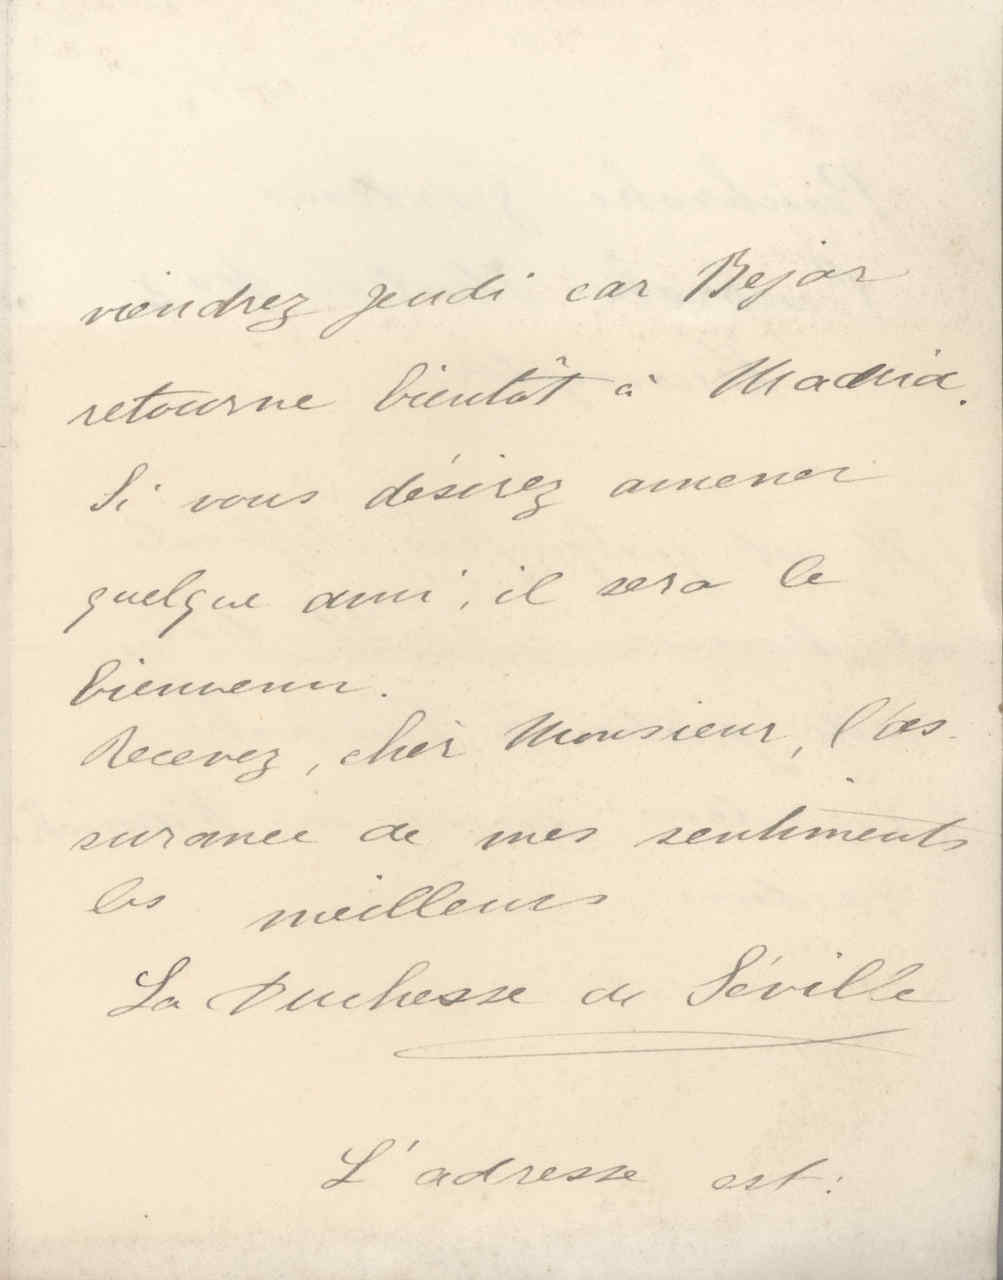 viendrez Jeudi car Bejar
retourne bientôt à Madrid.
Si vous désirez amener
quelque ami, il sera le
bienvenu.
Recevez, cher Monsieur, l'as-
surance de mes sentiments
les meilleurs
La Duchesse de Séville
L'adresse est: